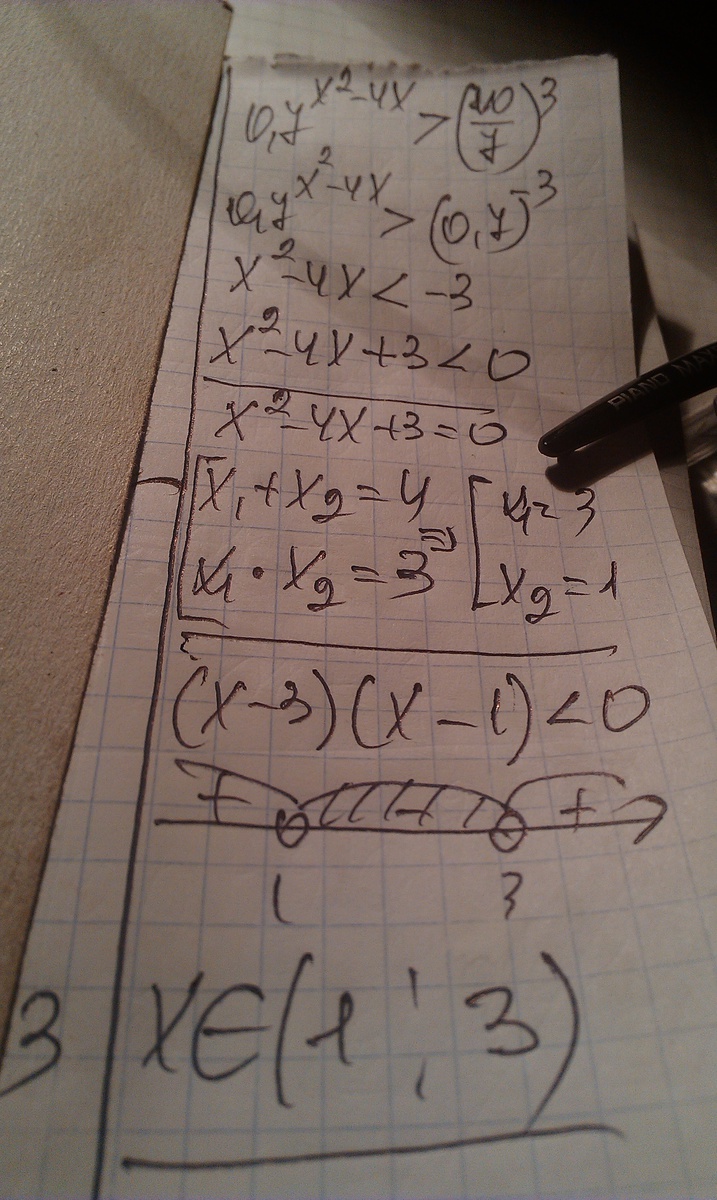 0,7^{x^2-4x} > (10/7)^3
0,7^{x^2-4x} > (0,7)^{-3}
x^2-4x < -3
x^2-4x+3 < 0
x^2-4x+3=0
[x_1+x_2=4
x_1·x_2=3 => [x_1=3
x_2=1
(x-3)(x-1)<0
+ - +
1 3
3
x∈(1;3)
PIANO